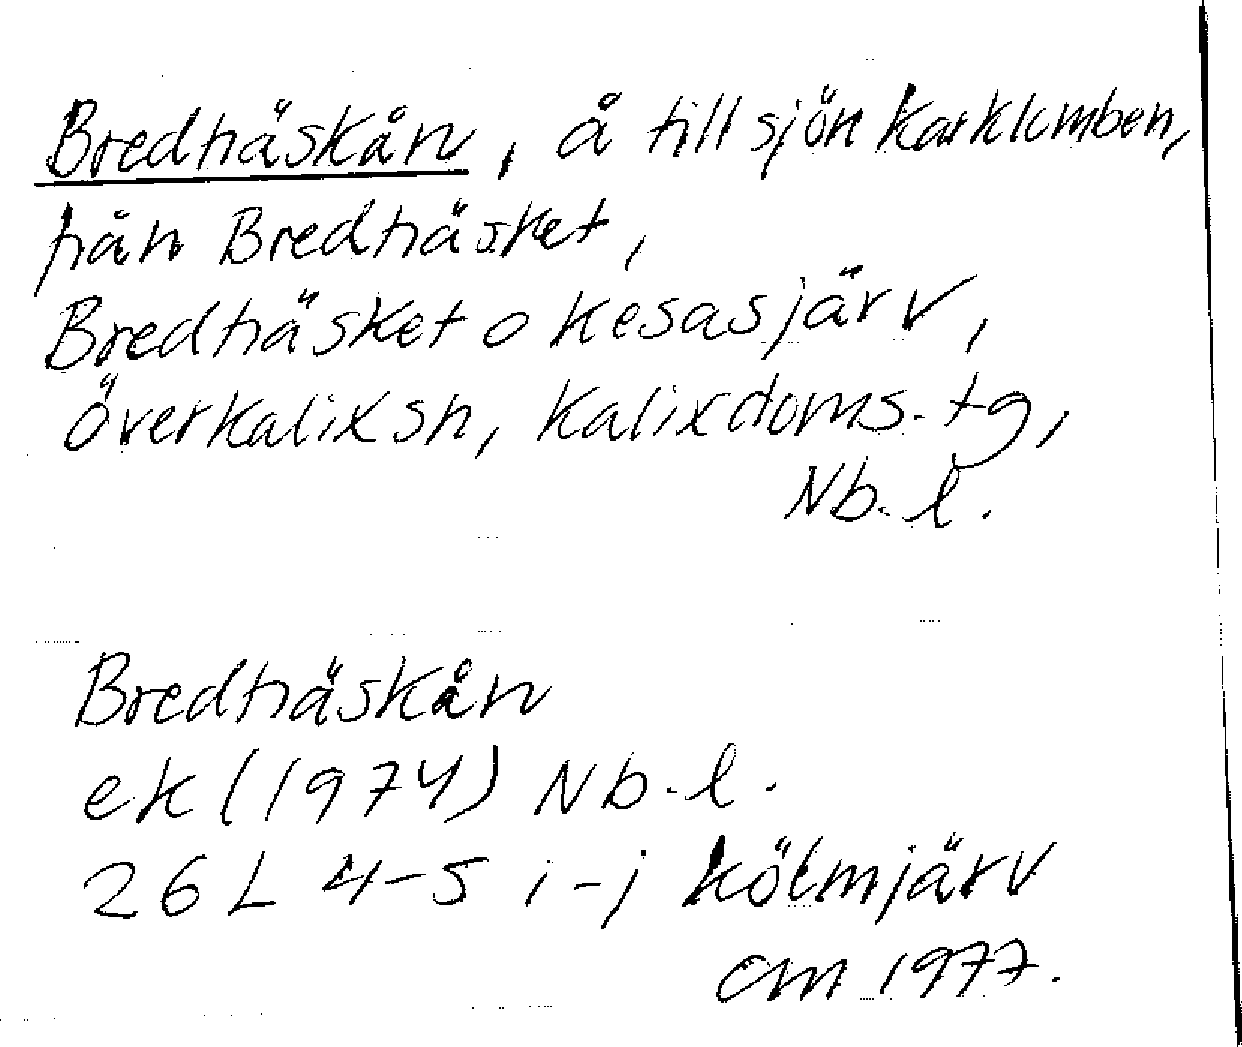 Bredträskån, å till sjön Karklomben,
från Bredträsket,
Bredträsket o Kesasjärv,
Överkalix sn, Kalix doms. tg,
Nb. l.
Bredträskån
ek (1974) Nb. l.
26 L 4-5 i-j Kölmjärv
CM 1977.